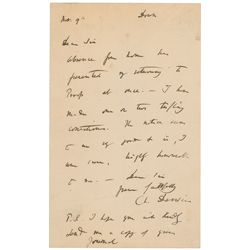 Nov. 9th Down
Dear Sir
Absence from home has
prevented my returning the
Proof at once. — I have
made one or two trifling
corrections. The notice seems
to me very good & is, I
am sure, highly honourable
to me. —
Dear Sir
yours faithfully
Ch. Darwin
P.S. I hope you will kindly
send me a copy of your
Journal